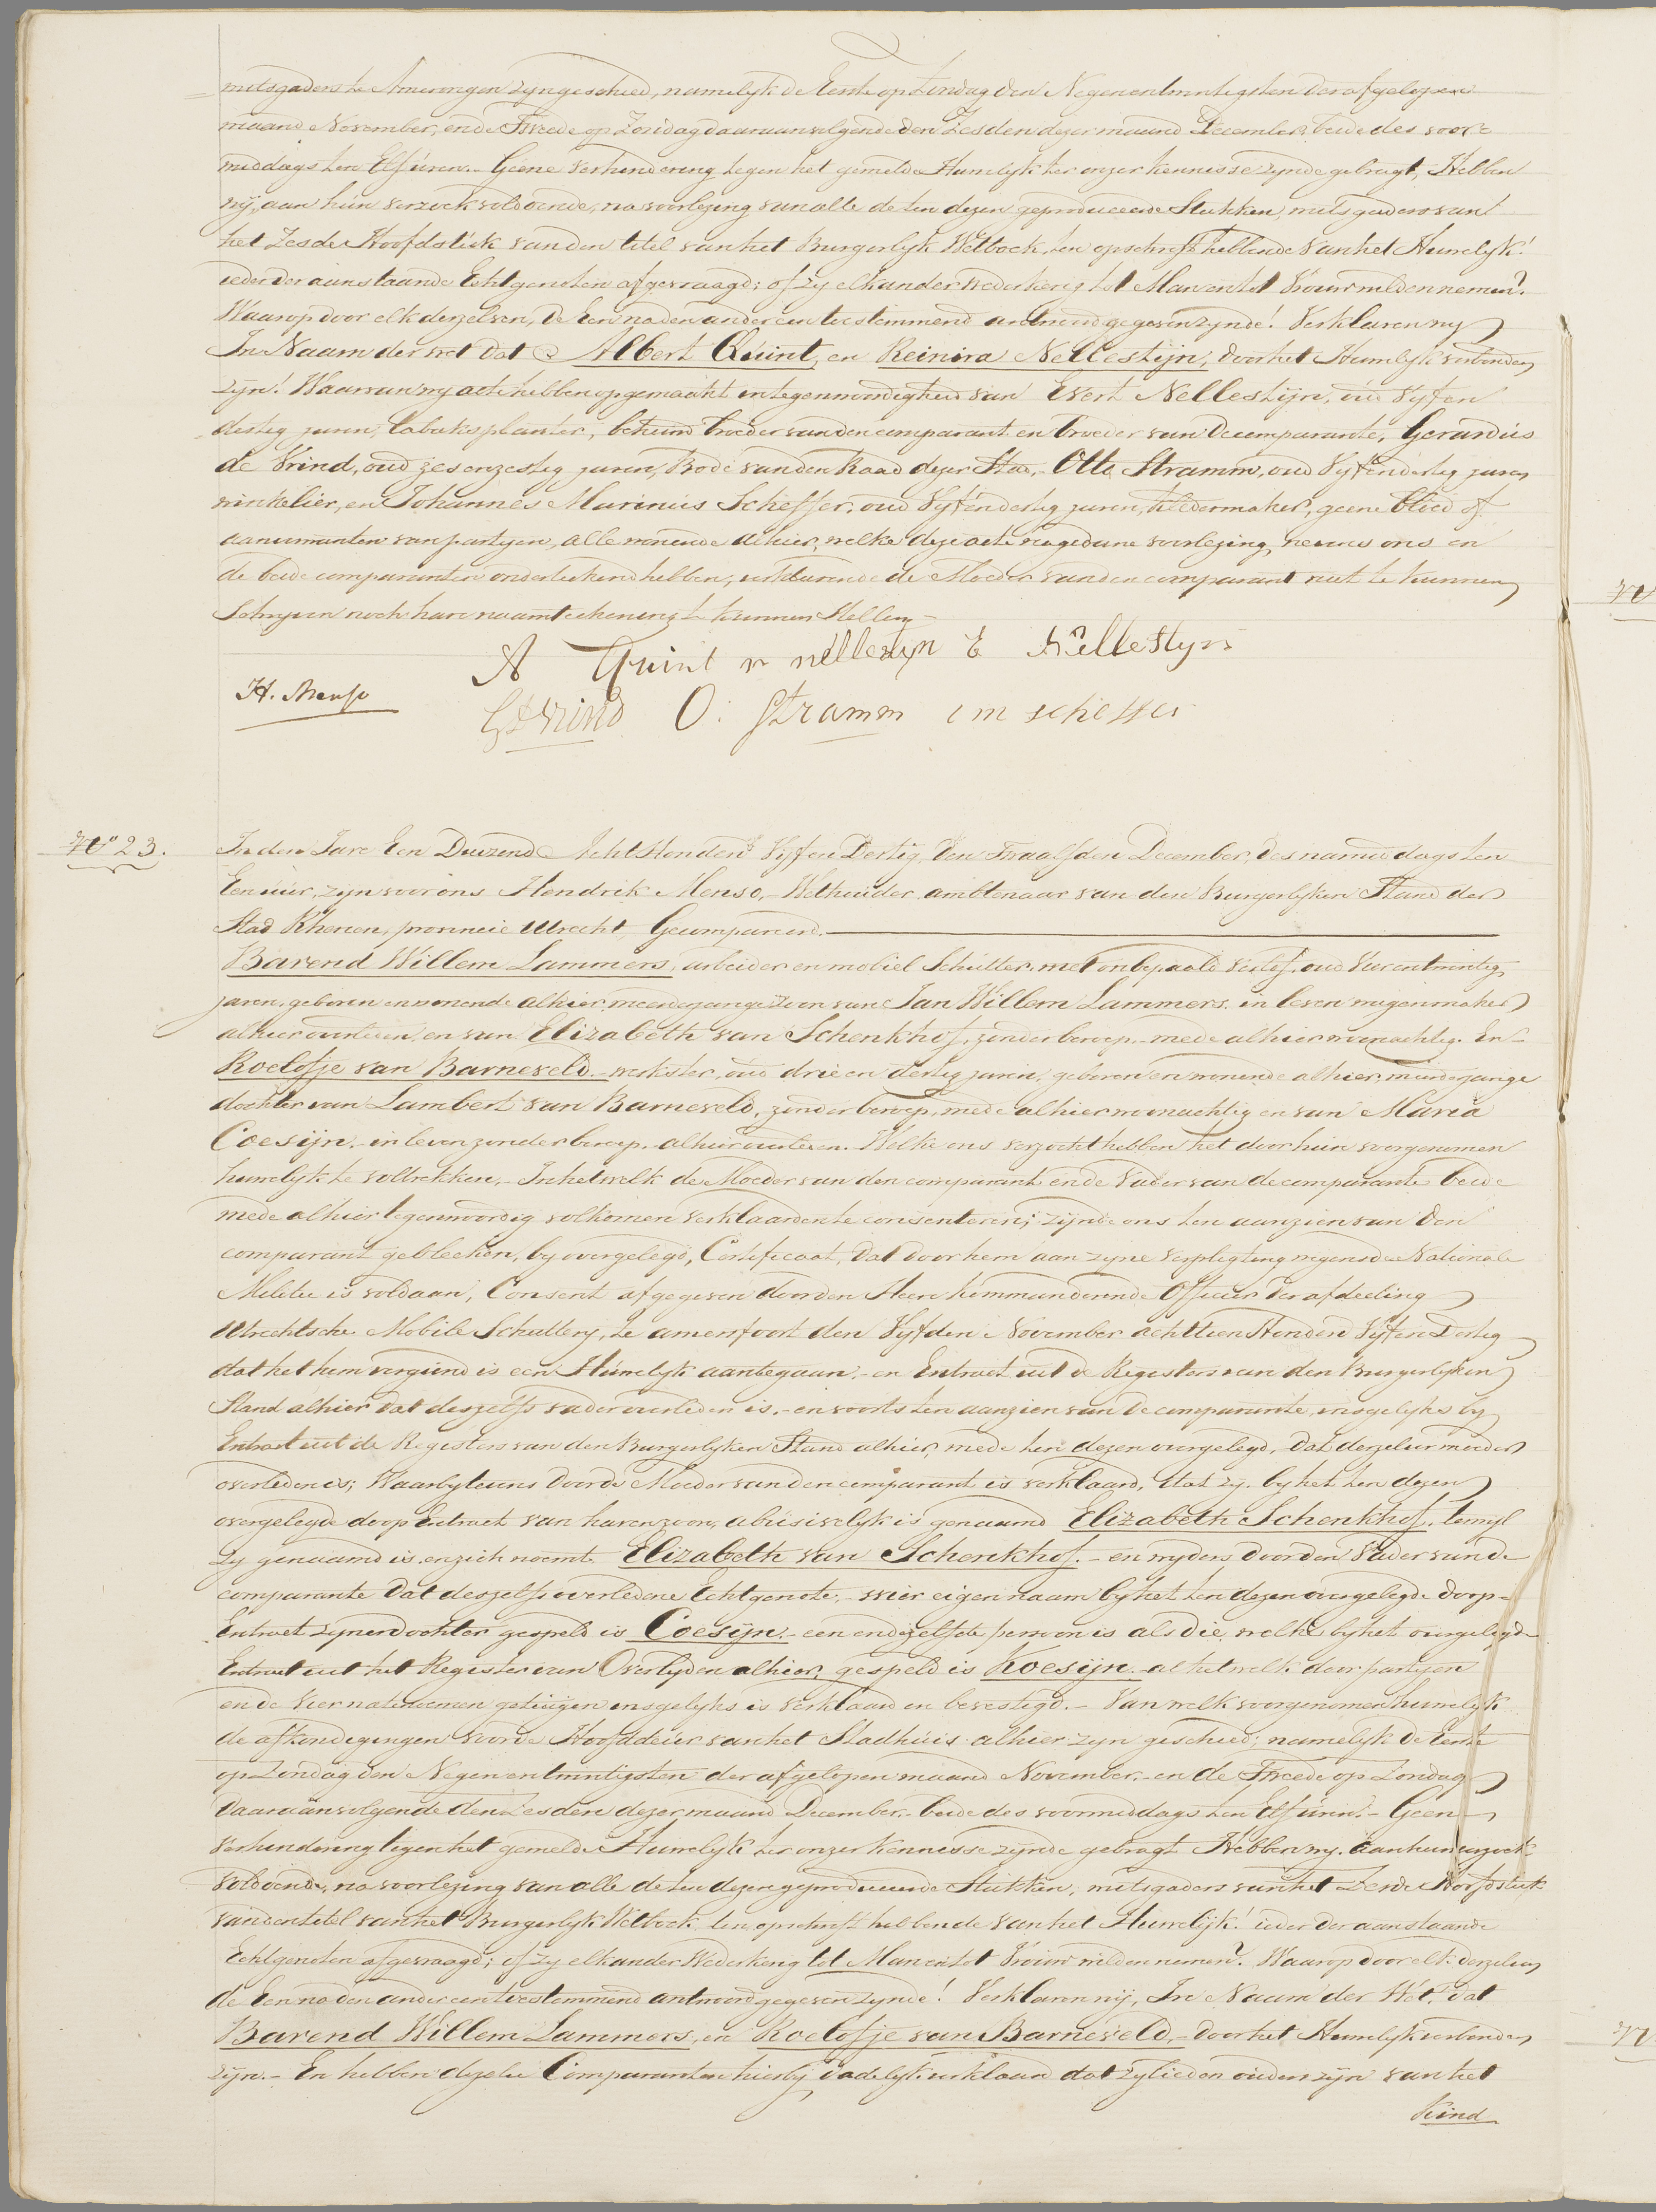 mitsgaders te Amerongen zijn geschied, namelyk de Eerste op Zondag den Negenentwintigsten der afgelopen
maand November, en de Tweede op Zondag daaraanvolgende den Zesden dezer maand December, beide des voor-
middags ten Elf uren. Geene verhindering tegen het gemelde Huwelyk ter onzer kennisse zynde gebragt, Hebben
wij, aan hun verzoek voldoende, na voorlezing van alle de ten dezen geproduceerde Stukken, mitsgaders van
het Zesde Hoofdstuk van den titel van het Burgerlyk Wetboek ten opschrift hebbende van het Huwelyk!
ieder der aanstaande Echtgenoten afgevraagd; of zy elkander wederkerig tot Man en tot Vrouw wilden nemen?
Waarop door elk derzelven, de Een na den ander een toestemmend antwoord gegeven zynde! Verklaren wy
In Naam der wet dat Albert Quint, en Reinira Nellestijn, door het Huwelyk verbonden
zyn! Waarvan wy acte hebben opgemaakt in tegenwoordigheid van Evert Nellestijn, oud Vyf en
dertig jaren, tabaksplanter, behuwd broeder van den comparant en broeder van de comparante, Gerardus
de Vrind, oud zes en zestig jaren, Bode van den Raad dezer Stad, Otto Stramm, oud Vyf en dertig jaren
winkelier, en Johannes Marinus Scheffer, oud Vyf en dertig jaren, kledermaker, geene bloed of
aanverwanten van partyen, alle wonende alhier, welke deze acte na gedane voorlezing, nevens ons en
de beide comparanten onderteekend hebben, verklarende de Moeder van den comparant niet te kunnen
Schryven noch hare naamteekening te kunnen Stellen.
A Quint r nellestyn E Nellestyn
H. Menso
G D Vrind O: Stramm I m scheffer
No 23.
In den Jare Een Duizend Acht Honderd Vyf en Dertig, den Twaalfden December, des namiddags ten
Een uur, zyn voor ons Hendrik Menso, Wethouder, ambtenaar van den Burgerlyken Stand der
Stad Rhenen, provincie Utrecht, Gecompareerd.
Barend Willem Lammers, arbeider en mobiel Schutter, met onbepaald verlof, oud Vier en twintig
jaren, geboren en wonende alhier, meerderjarige Zoon van Jan Willem Lammers, in leven wagenmaker
alhier overleden, en van Elizabeth van Schenkhof, zonder beroep, mede alhier woonachtig. En
Roelofje van Barneveld, werkster, oud drie en dertig jaren, geboren en wonende alhier, meerderjarige
dochter van Lambert van Barneveld, zonder beroep, mede alhier woonachtig en van Maria
Coesijn, in leven zonder beroep, alhier overleden. Welke ons verzocht hebben het door hun voorgenomen
huwelyk te voltrekken. In hetwelk de Moeder van den comparant en de Vader van de comparante beide
mede alhier tegenwoordig volkomen verklaarden te consenteren; zijnde ons ten aanzien van den
comparant gebleeken, by overgelegd, Certificaat, dat door hem aan zyne verpligting wegens de Nationale
Militie is voldaan, Consent afgegeven door den Heer kommanderende Officier der afdeeling
Utrechtsche Mobile Schuttery, te amersfoort den Vyfden November achttien Honderd Vyf en Dertig
dat het hem vergund is een Huwelyk aantegaan, en Extract uit de Registers van den Burgerlyken
Stand alhier dat deszelfs vader overleden is, en voorts ten aanzien van de comparante, insgelyks by
Extract uit de Registers van den Burgerlyken Stand alhier, mede ten dezen overgelegd, dat derzelver moeder
overleden is; Waarby tevens door de Moeder van den comparant is verklaard, dat zy, by het ten dezen
overgelegde doop Extract van haren zoon, abusivelyk is genaamd Elizabeth Schenkhof, terwyl
zy genaamd is en zich noemt Elizabeth van Schenkhof. en wyders door den Vader van de
comparante dat deszelfs overledene Echtgenote, wier eigen naam by het ten dezen overgelegde doop-
Extract zyner dochter gespeld is Coesijn, een en dezelfde persoon is als die, welke by het overgelegde
Extract uit het Register van Overlyden alhier, gespeld is Koesijn. al hetwelk door partyen
en de vier natenoemen getuigen insgelyks is verklaard en bevestigd. Van welk voorgenomen huwelyk
de afkondigingen voor de Hoofddeur van het Stadhuis alhier zyn geschied; namelyk de Eerste
op Zondag den Negen en twintigsten der afgelopen maand November, en de Tweede op Zondag
daaraanvolgende den Zesden dezer maand December, beide des voormiddags ten Elf uren. Geen
verhindering tegen het gemelde Huwelyk ter onzer kennisse zynde gebragt Hebben wy, aan hun verzoek
voldoende, na voorlezing van alle de ten dezen geproduceerde Stukken, mitsgaders van het Zesde Hoofdstuk
van den titel van het Burgerlyk Wetboek ten opschrift hebbende van het Huwelijk! ieder der aanstaande
Echtgenoten afgevraagd; of zy elkander Wederkerig tot Man en tot Vrouw wilden nemen? Waarop door elk derzelven
de Een na den ander een toestemmend antwoord gegeven zynde! Verklaren wij, In Naam der Wet, dat
Barend Willem Lammers, en Roelofje van Barneveld, door het Huwelyk verbonden
zyn. En hebben dezelve Comparanten hierby dadelyk verklaard dat zylieden ouders zijn van het
Kind